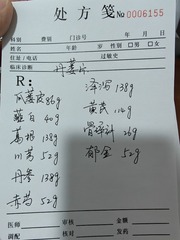 处方笺 No 0006155
科别 费别 门诊号 年 月 日
姓名 年龄 性别 □男 □女
住址/电话 过敏史
临床诊断 丹蒌片
R:
瓜蒌皮86g 泽泻138g
薤白40g 黄芪114g
葛根138g 骨碎补26g
川芎52g 郁金52g
丹参138g
赤芍52g
医师 审核 金额
调配 核对 发药